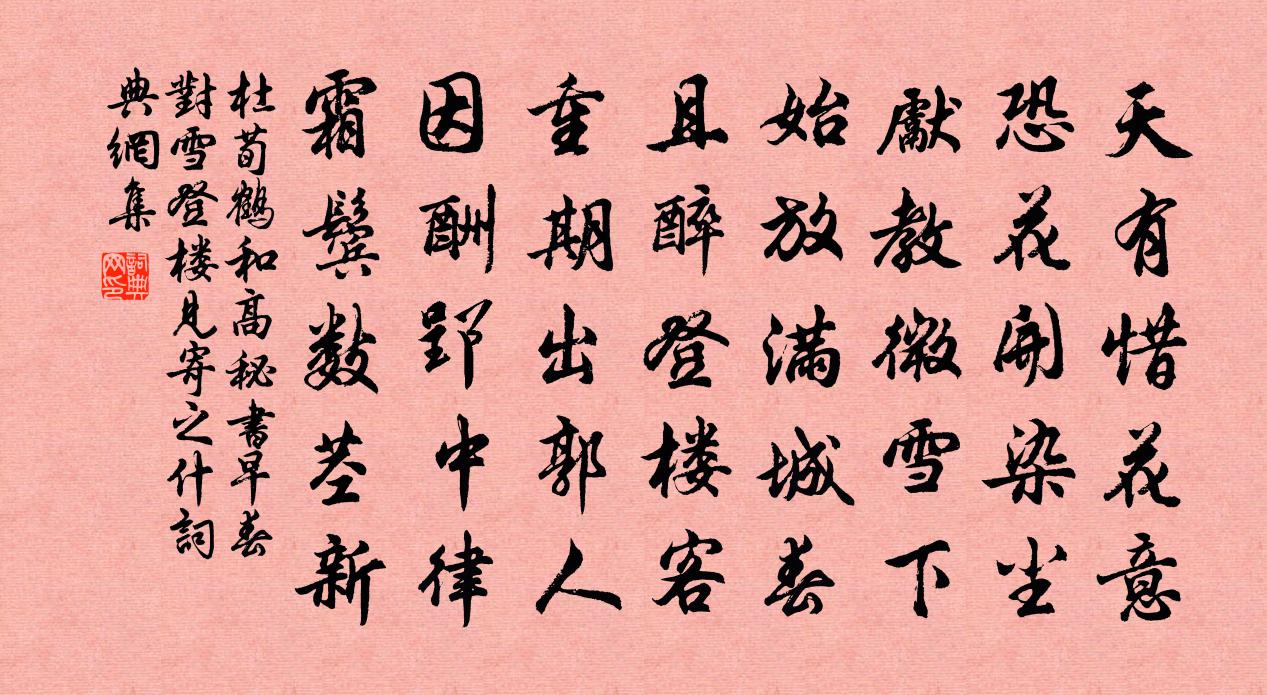 天有惜花意
恐花開染尘
獻教微雪下
始放滿城春
且醉登楼客
重期出郭人
因酬郢中律
霜鬢數茎新
杜荀鶴和高秘書早春
對雪登楼見寄之什詞
典網集
詞典
网印